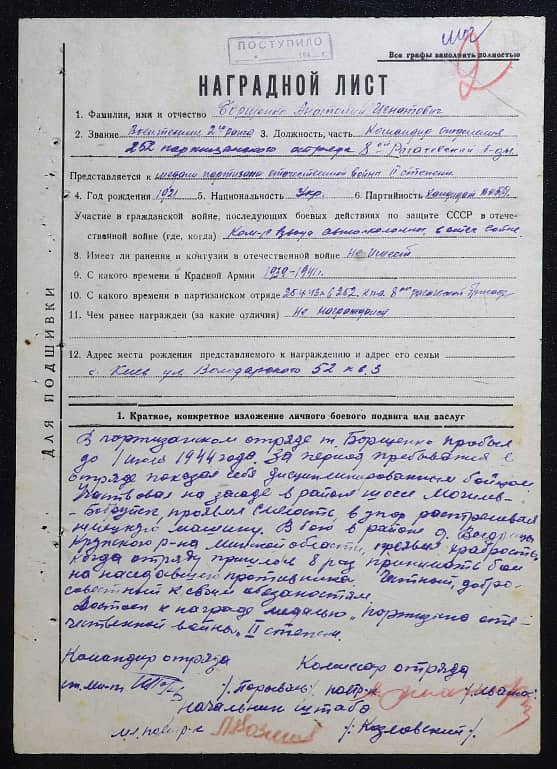 ПОСТУПИЛО
194 г.
2
Все графы заполнять полностью
НАГРАДНОЙ ЛИСТ
1. Фамилия, имя и отчество Борщенко Анатолий Игнатович
2. Звание Воентехник 2го ранга 3. Должность, часть Командир отделения
252 партизанского отряда 8ой Рогачевской б-ды
Представляется к медали партизана отечественной война II степени.
4. Год рождения 1921 5. Национальность Укр. 6. Партийность Кандидат
Участие в гражданской войне, последующих боевых действиях по защите СССР в отече-
ственной войне (где, когда) Ком-р взвода автоколонны, в отеч войне
8. Имеет ли ранения и контузии в отечественной войне не имеет
9. С какого времени в Красной Армии 1939-1941г.
10. С какого времени в партизанском отряде 25.4.43 в 252 п.т.о 8ой рогачевской бригаде
11. Чем ранее награжден (за какие отличия) не награждался
12. Адрес места рождения представляемого к награждению и адрес его семьи
г. Киев ул Володарского 52 кв. 3
ДЛЯ ПОДШИВКИ
1. Краткое, конкретное изложение личного боевого подвига или заслуг
В партизанском отряде т. Борщенко пробыл
до 1 июля 1944 года. За период пребывания в
отряде показал себя дисциплинированным бойцом
Участвовал на засаде в районе шоссе Могилев-
-Бобруйск проявил смелость в упор расстреливая
немецкую машину. В бою в районе д.
Крупского р-на Минской области, проявил храбрость
когда отряду пришлось 8 раз принимать бой
на наседавшего противника. Честный, добро-
совестный к своим обязаностям.
Достоин к награде медалью „партизана оте-
чественной войны" II степени.
Командир отряда Комиссар отряда
ст. лей-т /Порываев/
Начальник штаба
/Козловский/.